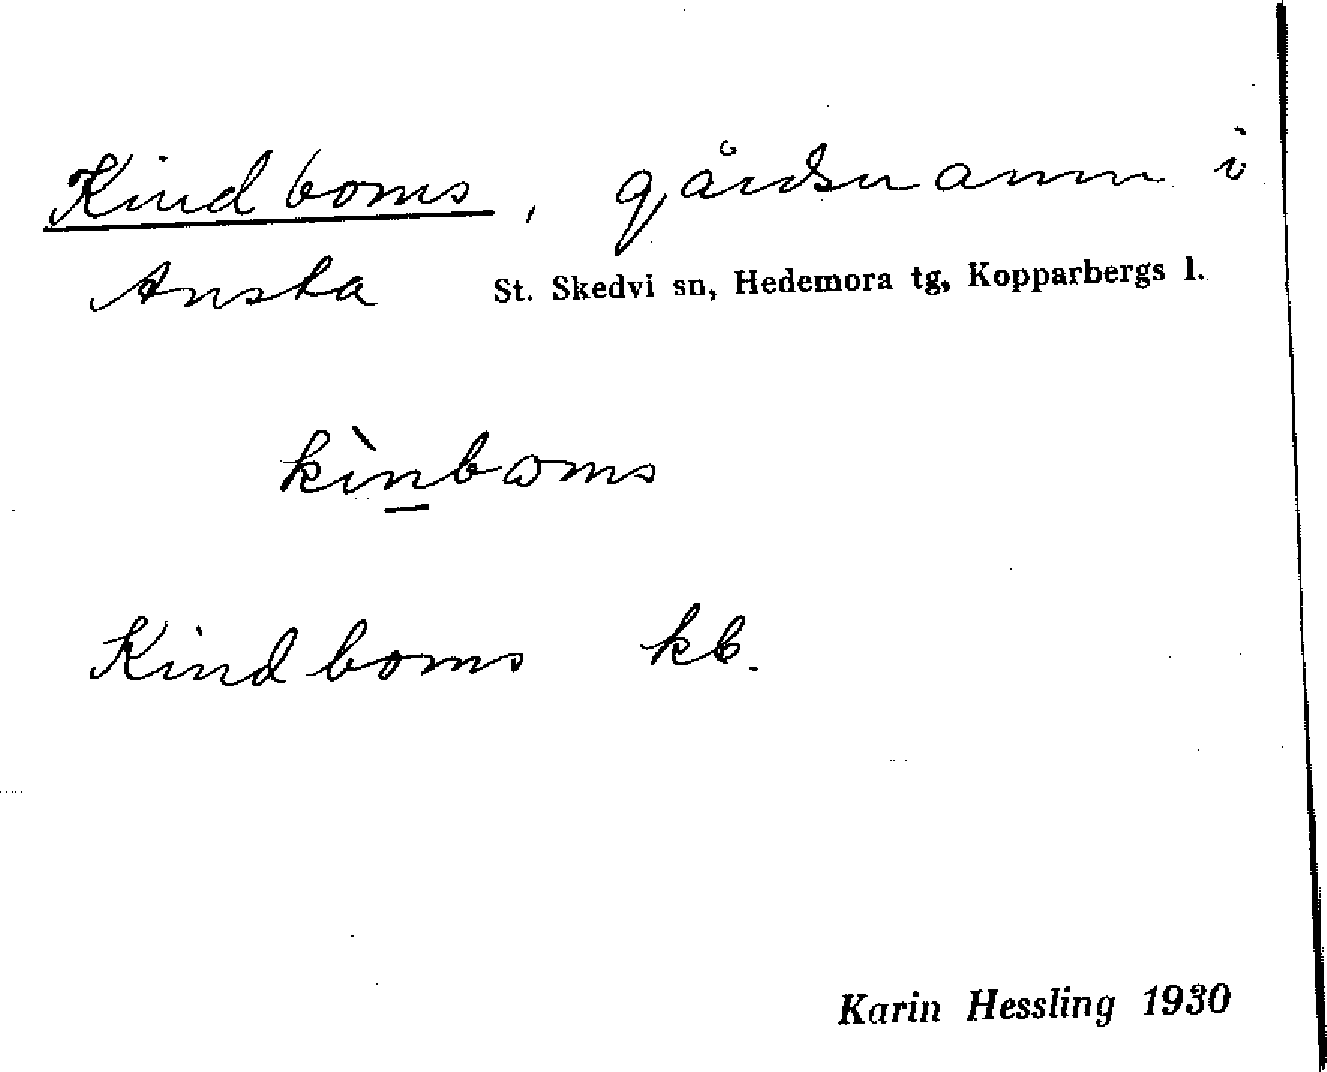 Kindboms, gårdsnamn i
Ansta St. Skedvi sn, Hedemora tg, Kopparbergs l.
kìnboms
Kindboms kb.
Karin Hessling 1930